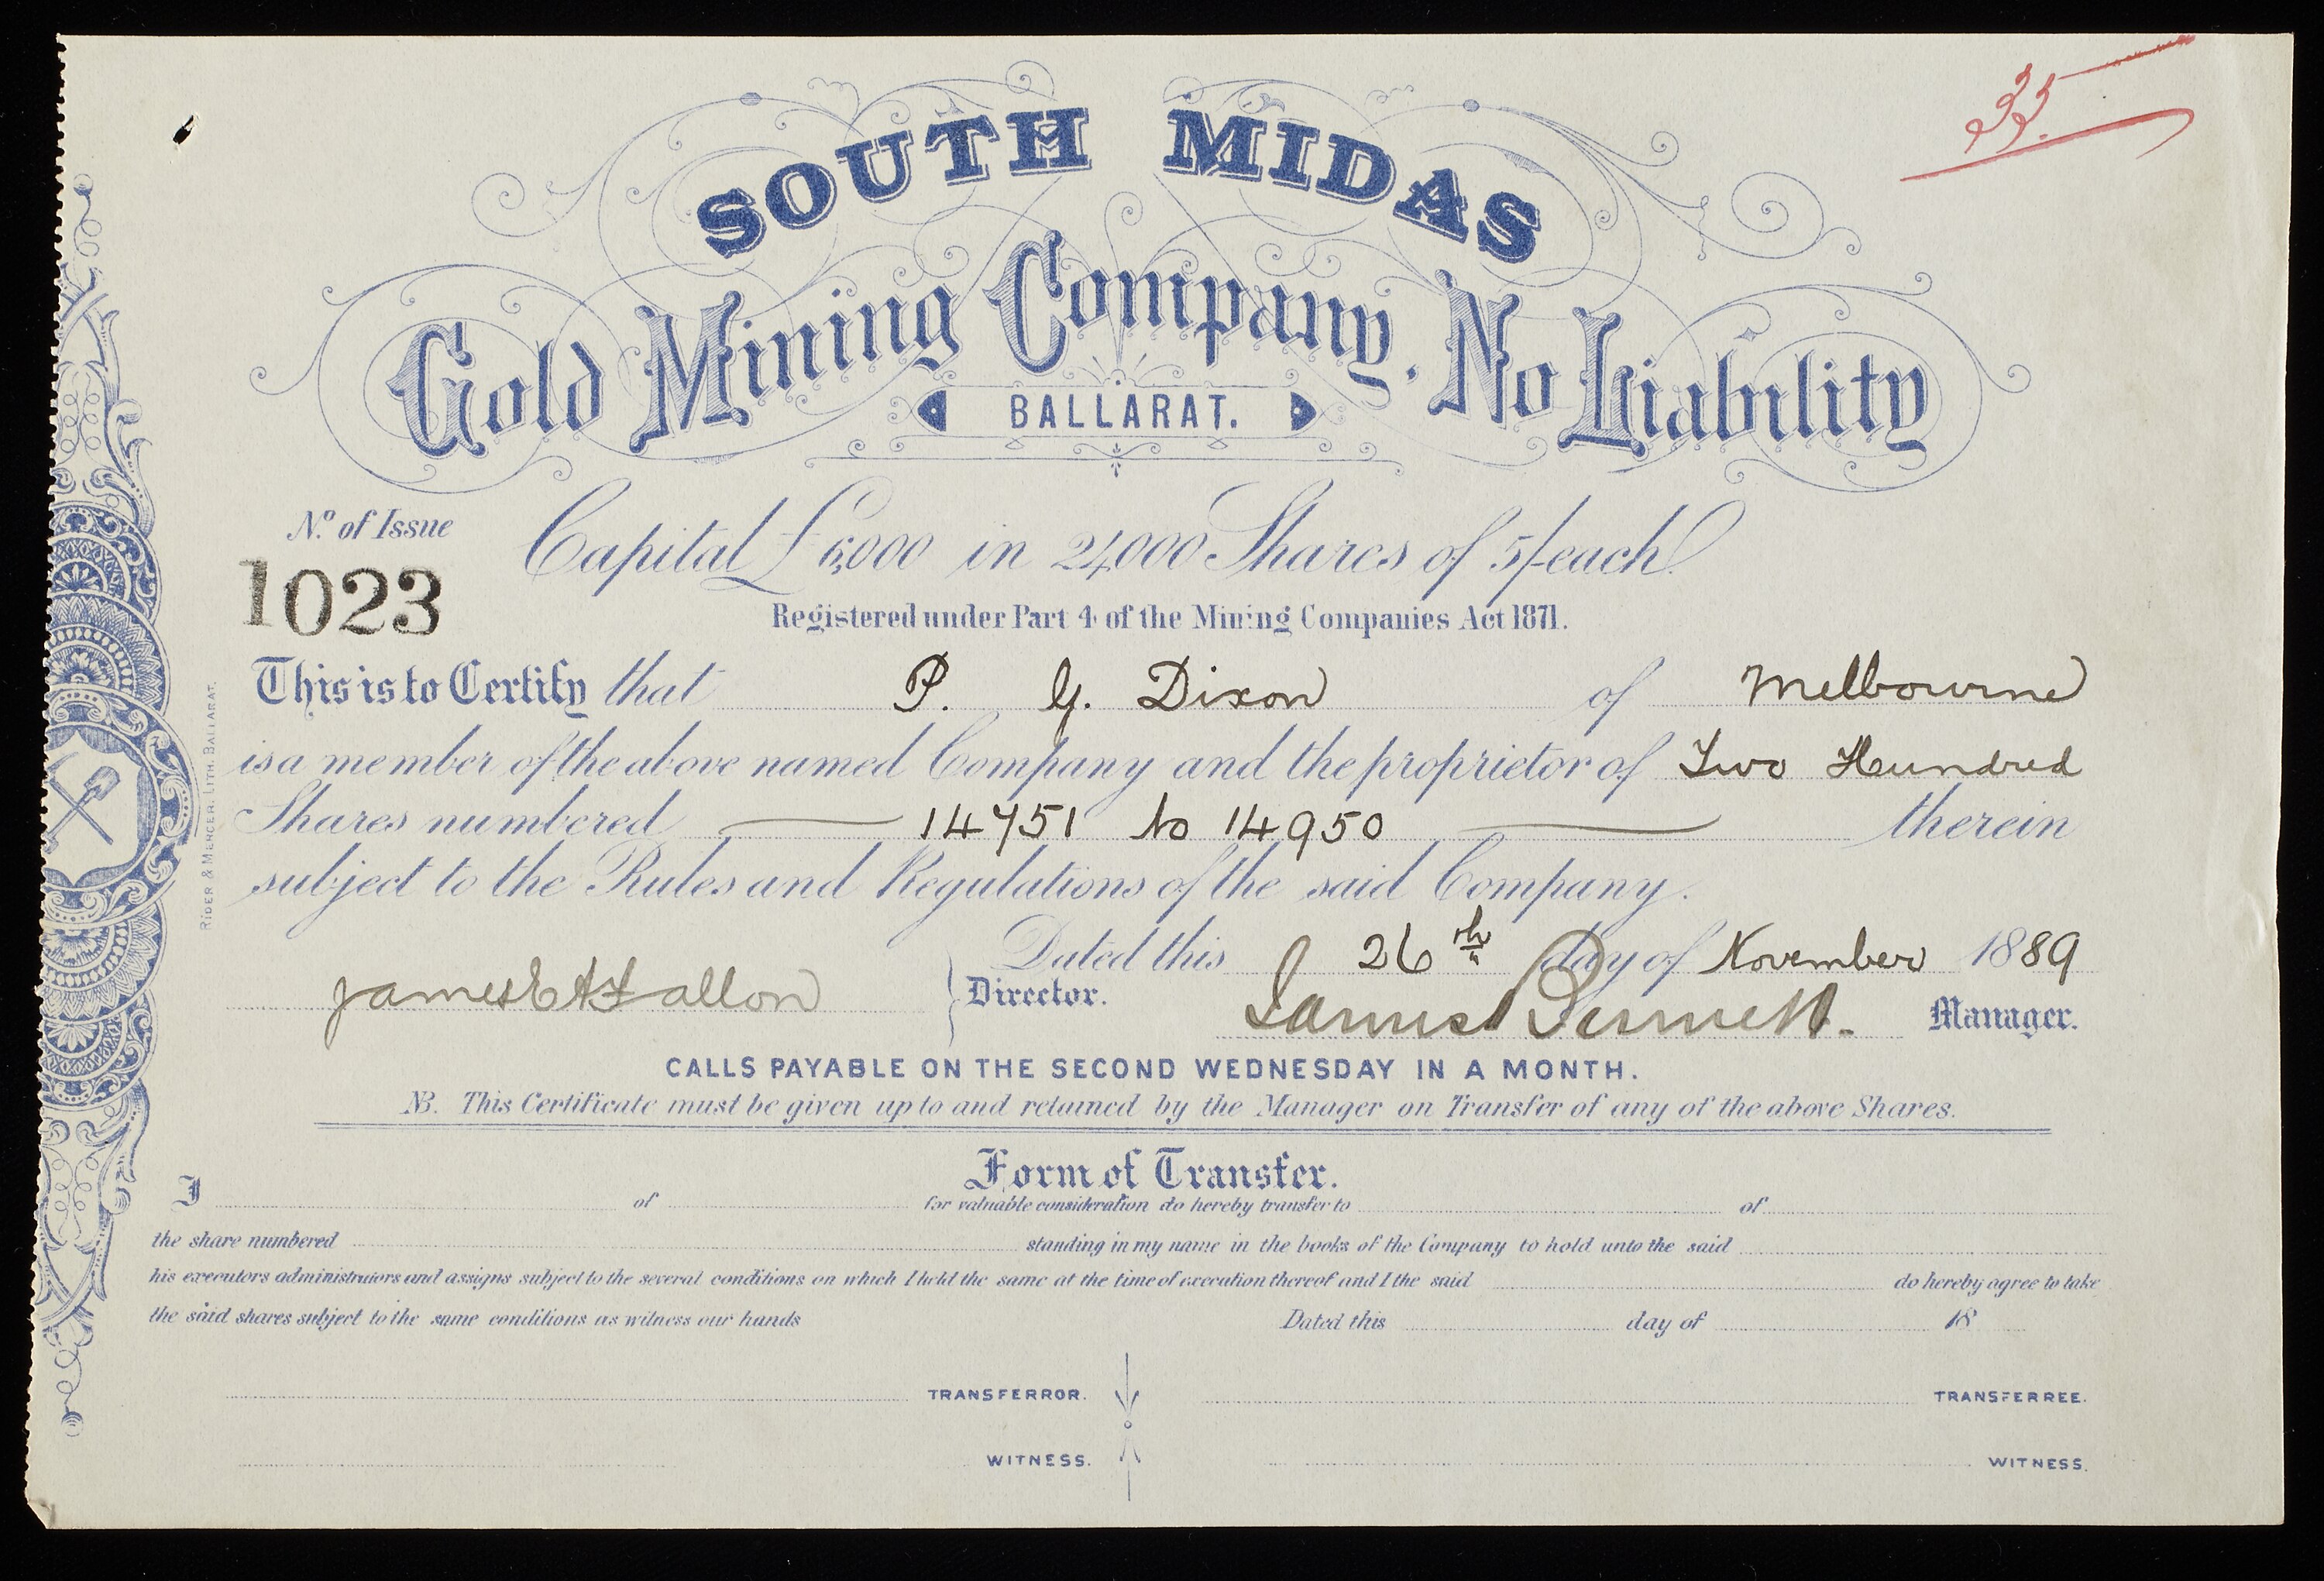 35
SOUTH MIDAS
Gold Mining Company, No Liability
BALLARAT.
No. of Issue
1023
Capital £6,000 in 24,000 Shares of 5/- each
Registered under Part 4 of the Mining Companies Act 1871.
This is to Certify that P. G. Dixon of Melbourne
is a member of the above named Company and the proprietor of Two Hundred
Shares numbered 14751 to 14950 therein
subject to the Rules and Regulations of the said Company.
Dated this 26th day of November 1889
James Fallon Director.
James Manager.
CALLS PAYABLE ON THE SECOND WEDNESDAY IN A MONTH.
NB. This Certificate must be given up to and retained by the Manager on Transfer of any of the above Shares.
Form of Transfer.
I of for valuable consideration do hereby transfer to of
the share numbered standing in my name in the books of the Company to hold unto the said
his executors administrators and assigns subject to the several conditions on which I held the same at the time of execution thereof and I the said do hereby agree to take
the said shares subject to the same conditions as witness our hands Dated this day of 18
TRANSFERROR. TRANSFERREE.
WITNESS. WITNESS.
RIDER & MERCER. LITH. BALLARAT.